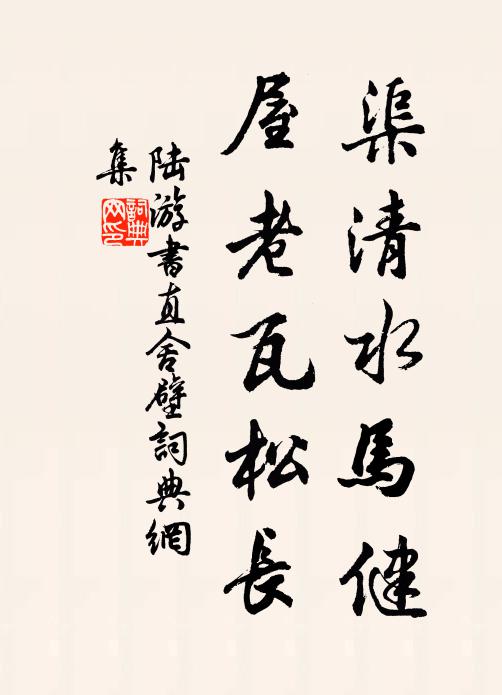 渠清水馬健
屋老瓦松長
陸游書直舍壁詞典網
集
詞典
网印